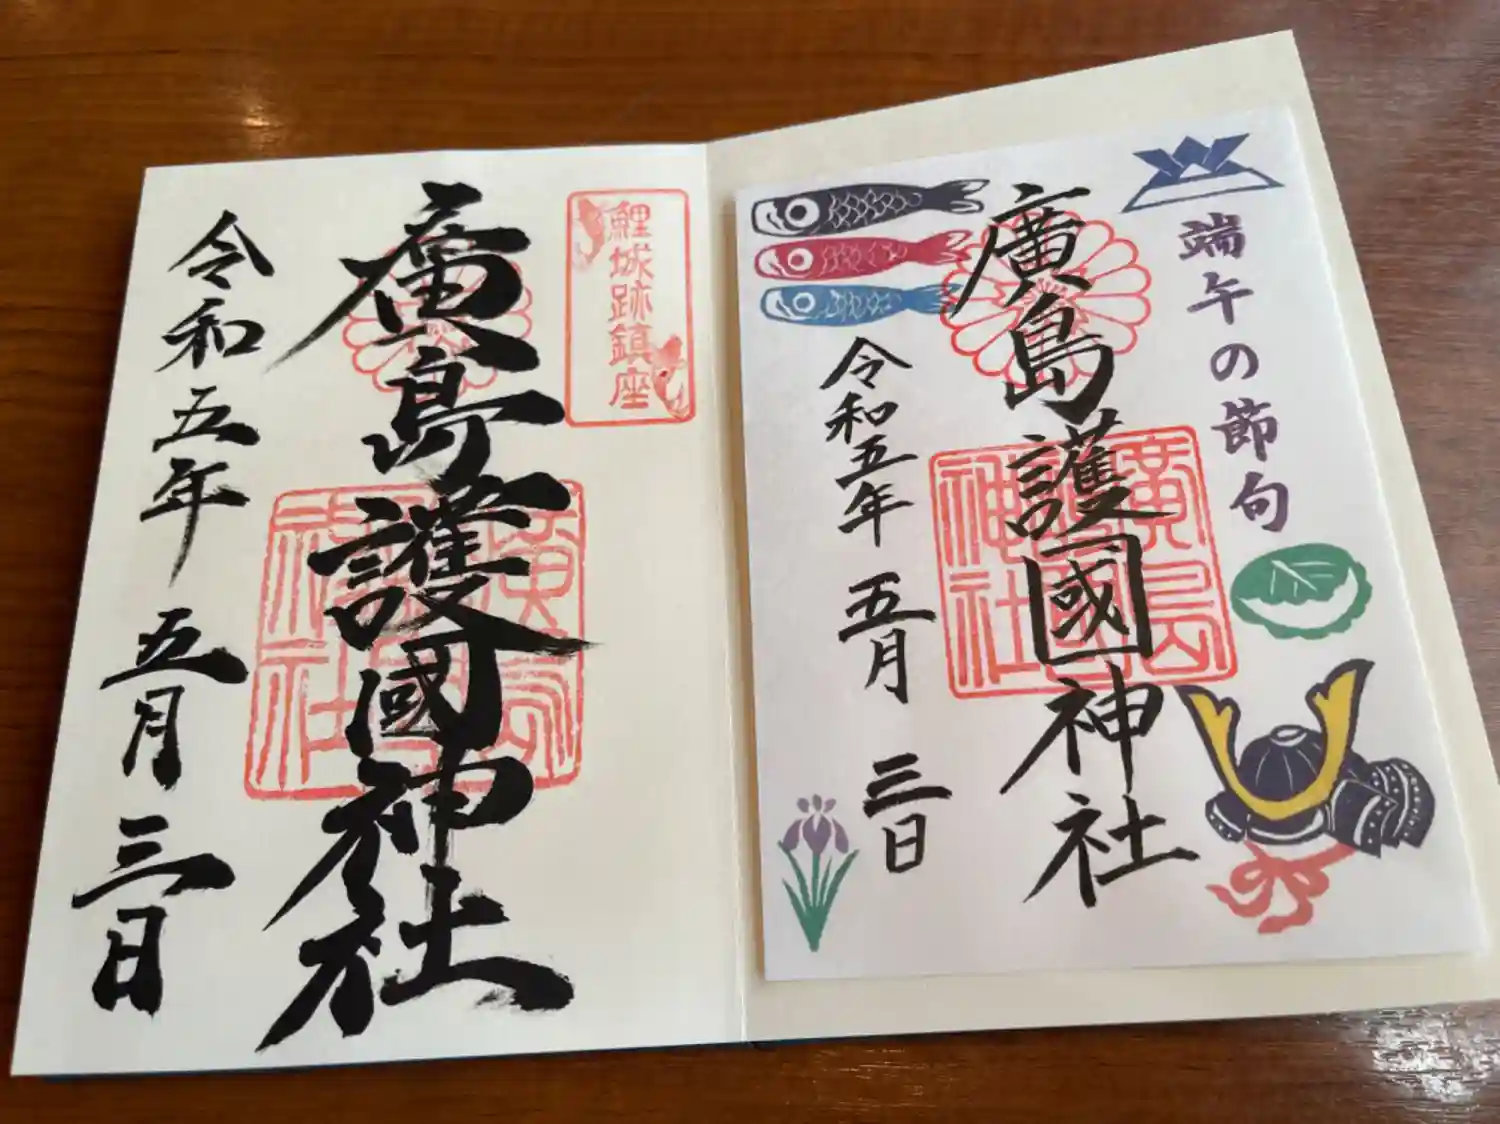 端午の節句
廣島護國神社
令和五年 五月 三日
鯉城跡鎮座
廣島護國神社
令和五年 五月 三日
廣島
護國
神社
廣島
護國
神社